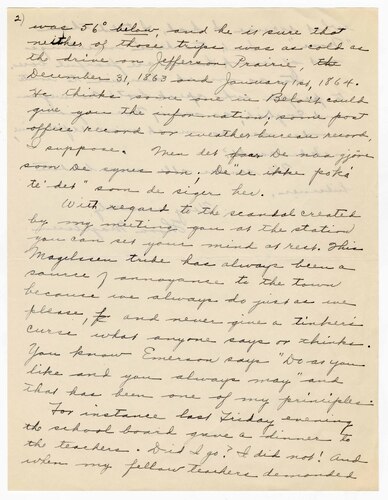 2)
was 56° below, and he is sure that
neither of those trips was as cold as
the drive on Jefferson Prairie, the
December 31, 1863 and January 1st, 1864.
He thinks some one in Beloit could
give you the information, some post
office record or weather bureau record,
I suppose. Men det faar De nua gjöre
som De synes om, De "ée ikke pskä
te' det" som de siger her.
With regard to the scandal created
by my meeting you at the station
you can set your mind at rest. This
Magelssen tribe has always been a
source of annoyance to the town
because we always do just as we
please, and never give a tinker's
curse what anyone says or thinks.
You know Emerson says "Do as you
like and you always may" and
that has been one of my principles.
For instance last Friday evening
the school board gave a dinner to
the teachers. Did I go? I did not! And
when my fellow teachers demanded